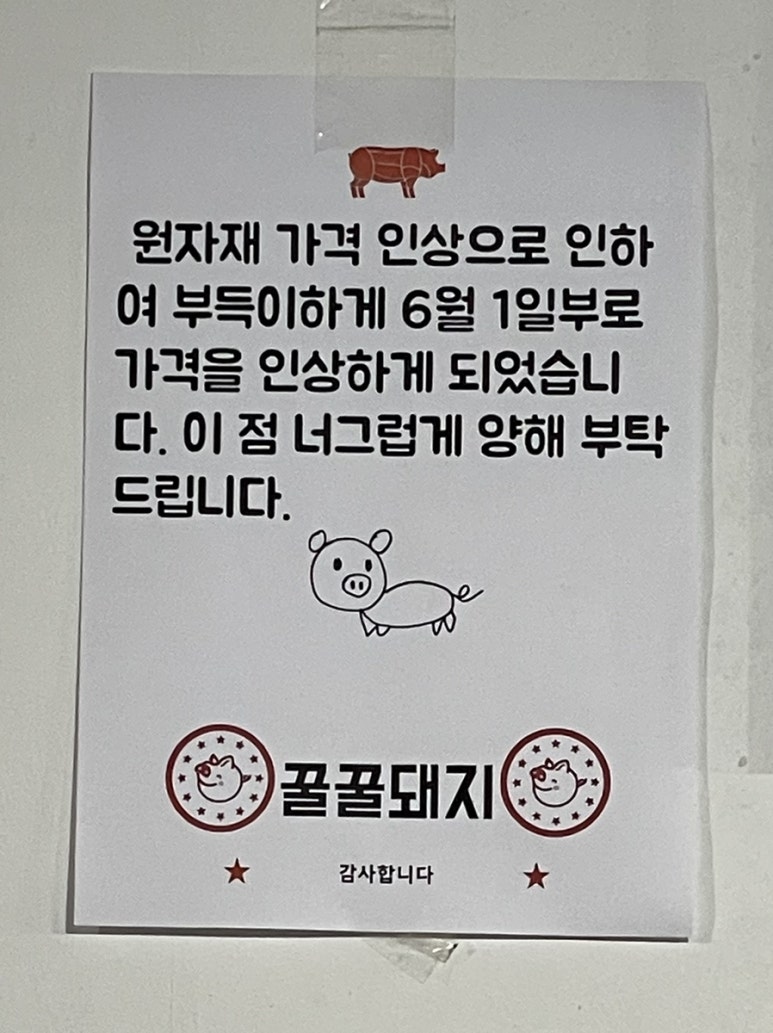 원자재 가격 인상으로 인하
여 부득이하게 6월 1일부로
가격을 인상하게 되었습니
다. 이 점 너그럽게 양해 부탁
드립니다.
꿀꿀돼지
감사합니다